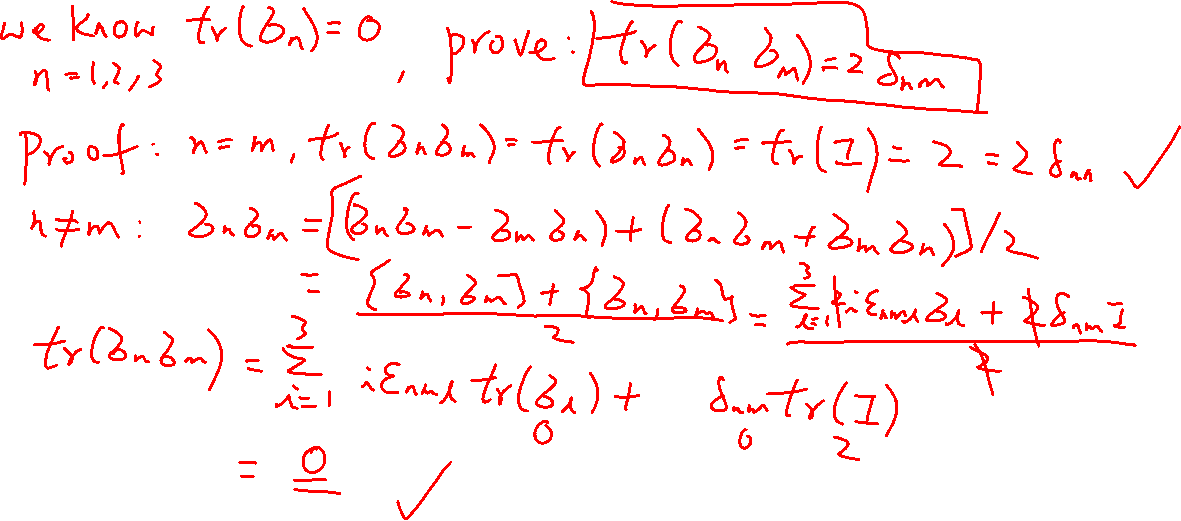 we know tr(σₙ)=0 , prove: tr(σₙ σₘ)=2 δₙₘ
n=1,2,3
Proof: n=m, tr(σₙσₘ)=tr(σₙσₙ)=tr(I)=2=2δₙₙ ✓
n≠m: σₙσₘ=[(σₙσₘ-σₘσₙ)+(σₙσₘ+σₘσₙ)]/2
= ([σₙ,σₘ]+{σₙ,σₘ})/2 = (∑_{i=1}^{3} 2iε_{nml}σ_l + 2δₙₘI)/2
tr(σₙσₘ)=∑_{i=1}^{3} iε_{nml} tr(σ_l) + δₙₘ tr(I)
0 0 2
= 0 ✓